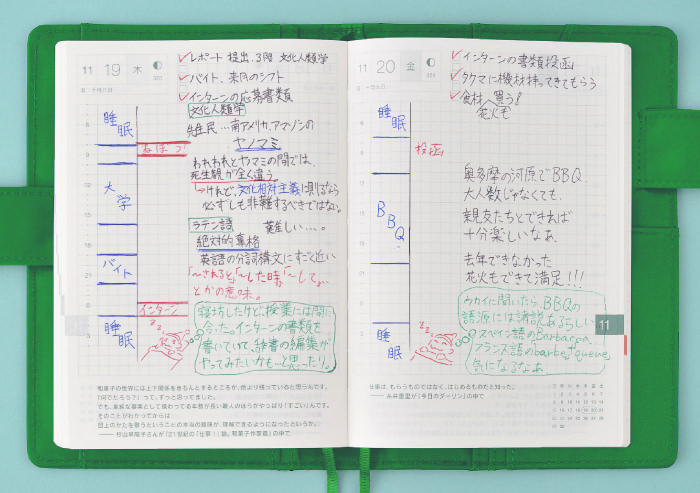 11 19 木
レポート 提出、3階 文化人類学
バイト、来月のシフト
インターンの応募書類
文化人類学
先住民…南アメリカ、アマゾンの
ヤノマミ
われわれとヤマミの間では、
死生観が全く違う。
→けれど、文化相対主義に則るなら
必ずしも非難するべきではない。
ラテン語 難しい…。
絶対的奪格
英語の分詞構文にすごく近い
「〜されると」「〜した時」「〜して」…
とかの意味。
睡眠
ねぼう!
大学
バイト
インターン
睡眠
zzz
寝坊したけど、授業には間に
合った。インターンの書類を
書いていて、辞書の編集が
やってみたいかも…と思ったり。
和菓子の世界には上下関係をきちんとするところか、他より残っていると思うんです。
「何でだろう?」って、ずっと思ってました。
でも、単純な事実として携わってる年数が長い職人のほうがやっぱり「すごい」んです。
そのことがわかってからは
目上のかたを敬うということの本当の意味が、理解できるようになったというか。
―― 杉山早陽子さんが『21世紀の「仕事!」論。和菓子作家篇』の中で
11 20 金
インターンの書類投函
タクマに機材持ってきてもらう
食材 買う!
花火も
睡眠
投函
BBQ
睡眠
奥多摩の河原でBBQ。
大人数じゃなくても、
親友たちとできれば
十分楽しいなぁ。
去年できなかった
花火もできて満足!!!
zzz
ウカイに聞いたら、BBQの
語源には諸説あるらしい
スペイン語のBarbacoa
フランス語のbarbe à queue
気になるなぁ
11
仕事は、もらうものではなく、はじめるものだと知った。
―― 糸井重里が『今日のダーリン』の中で